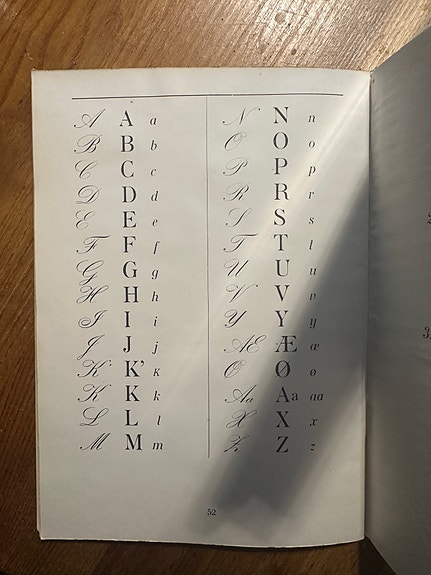 A A a
B B b
C C c
D D d
E E e
F F f
G G g
H H h
I I i
J J j
K' K' ĸ
K K k
L L l
M M m
N N n
O O o
P P p
R R r
S S s
T T t
U U u
V V v
Y Y y
Æ Æ æ
Ø Ø ø
Aa Aa aa
X X x
Z Z z
52